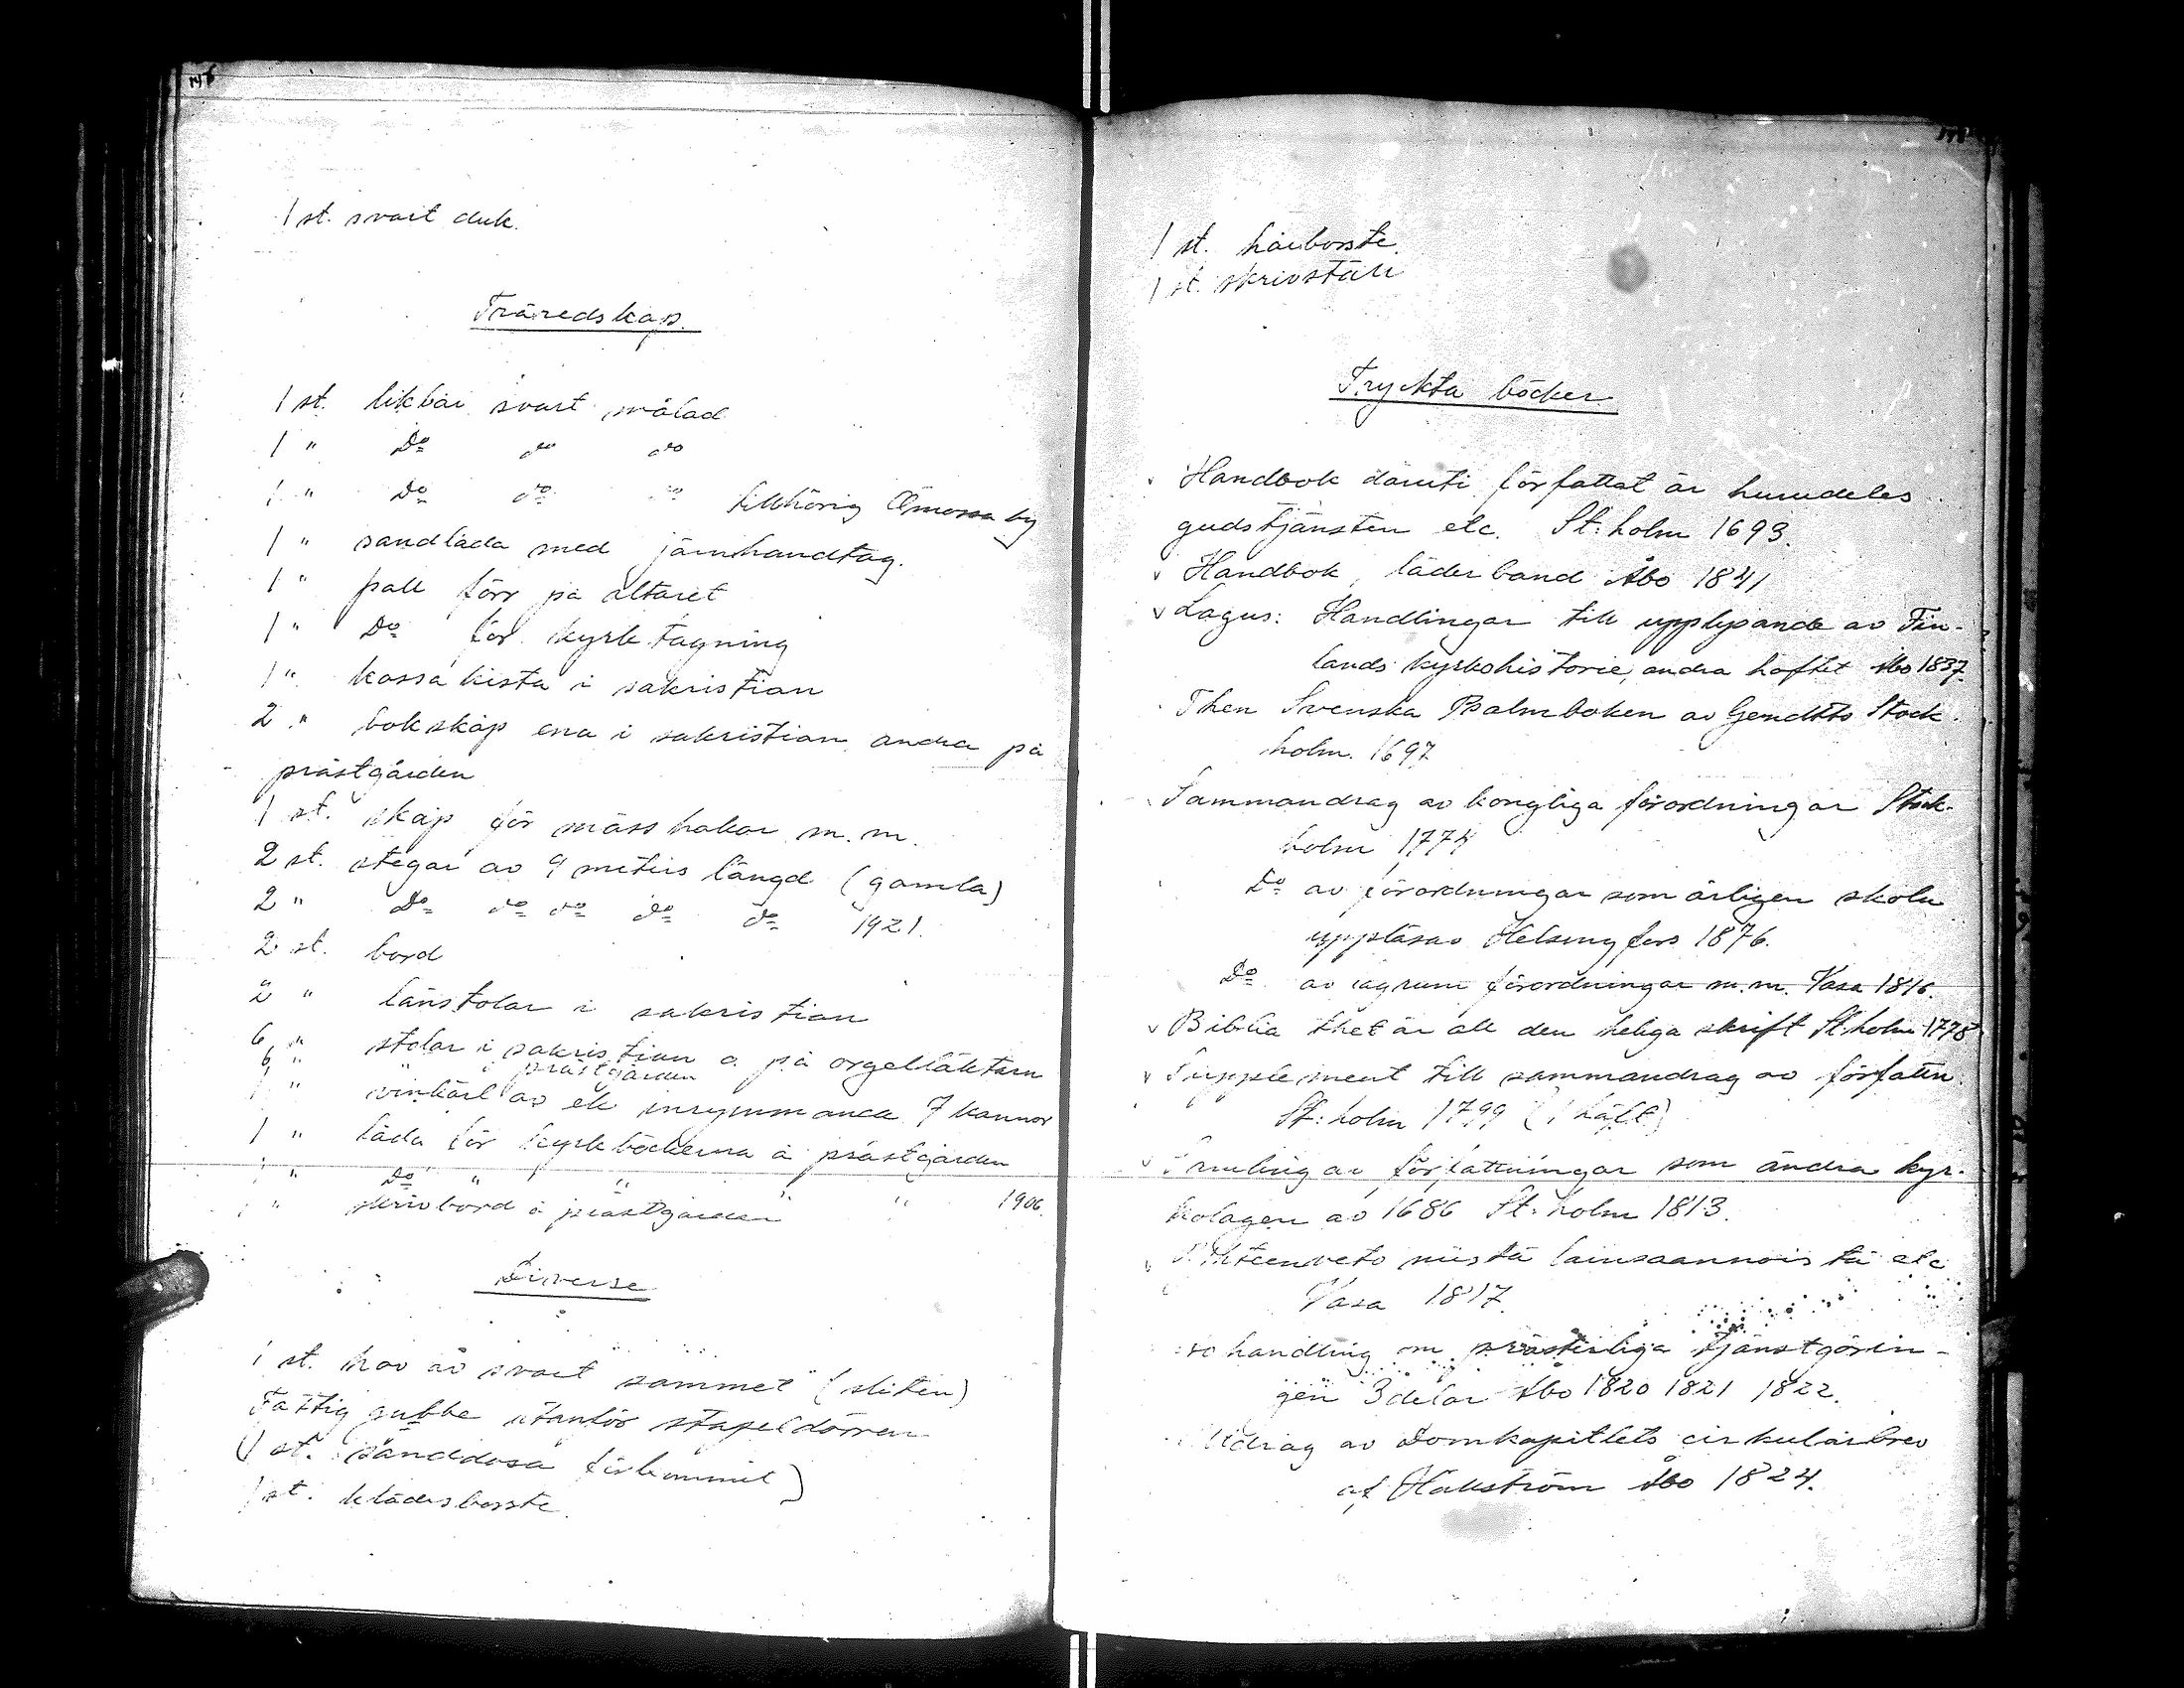 1 st. svart duk.
Träredskap.
1 st. likbår svart målad
1 " Do do do
1 " Do do do tillhörig Ömossa by
1 " sandlåda med järnhandtag.
1 " pall förr på altaret
1 " Do för kyrktagning
1 " kassakista i sakristian
2 " bokskåp ena i sakristian andra på
prästgården
1 st. skåp för mässhakar m.m.
2 st. stegar av 9 meters längd (gamla)
2 " Do do do do do 1921.
2 st. bord
2 " länstolar i sakristian
6 " stolar i sakristian o. på orgelläktarn
6 " " i prästgården
1 " vinkärl av ek inrymmande 7 kannor
1 " låda för kyrkböckerna å prästgården
" Do " " " " 1906.
" skrivbord å prästgården
Diverse
1 st. hov av svart sammet (sliten)
Fattiggubbe utanför stapeldörren
(1 st. sanddosa förkommit)
1 st. klädesborste.
1 st. hårborste.
1 st. skrivställ
Tryckta böcker
Handbok däruti författat är hurudeles
gudstjänsten etc. St:holm 1693.
v Handbok, läderband Åbo 1841
v Lagus: Handlingar till upplysande av Fin-
lands kyrkohistorie, andra häftet Åbo 1837.
Then Svenska Psalmboken av Stock-
holm. 1697
Sammandrag av kongliga förordningar Stock-
holm 1774
Do av förordningar som årligen skola
uppläsas Helsingfors 1876.
Do av förordningar m.m. Vasa 1816.
v Biblia thet är all den heliga skrift St:holm 1778
v Supplement till sammandrag av författn.
St:holm 1799 (1 häft)
v Samling av författningar som ändra kyr-
kolagen av 1686 St:holm 1813.
v Yhteenveto niistä lainsaannoista etc
Vasa 1817.
Avhandling om prästerliga tjänstgörin-
gen 3 delar Åbo 1820 1821 1822.
Utdrag av Domkapitlets cirkulärbrev
af Hallström Åbo 1824.